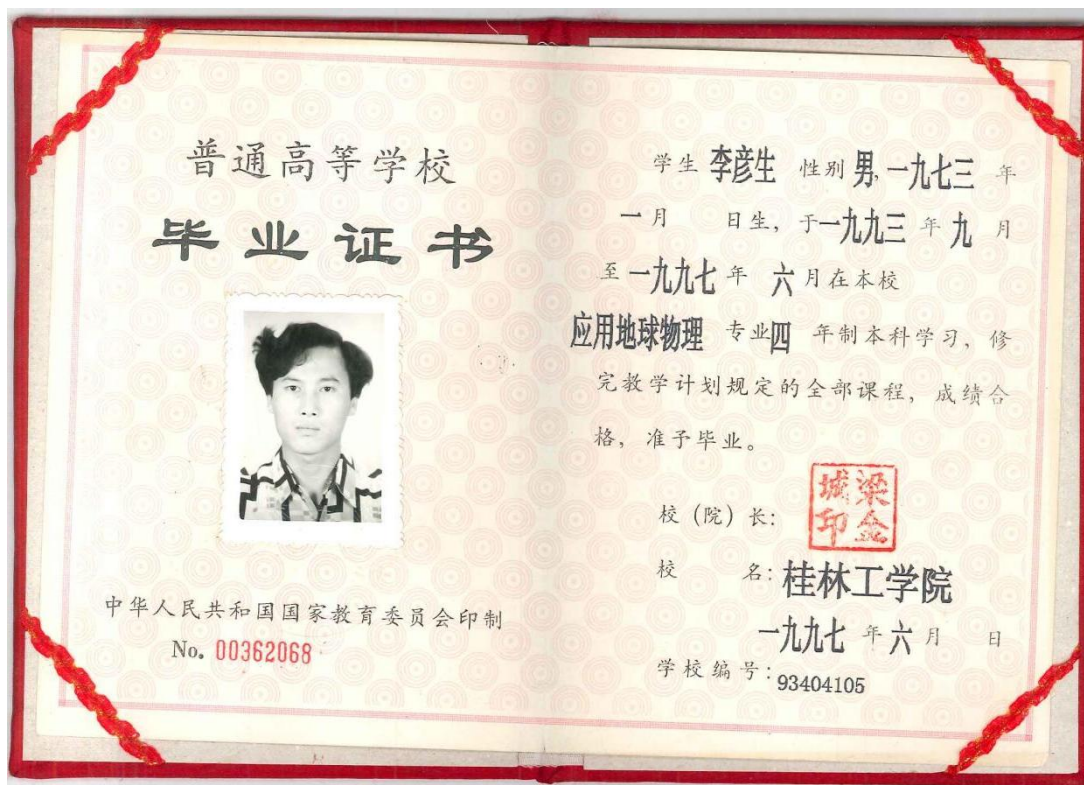 普通高等学校
毕业证书
中华人民共和国国家教育委员会印制
No. 00362068
学生 李彦生 性别 男, 一九七三 年
一月 日生, 于一九九三 年 九 月
至 一九九七 年 六 月在本校
应用地球物理 专业四 年制本科学习, 修
完教学计划规定的全部课程, 成绩合
格, 准予毕业。
校 (院) 长:
梁金城印
校 名: 桂林工学院
一九九七 年 六 月 日
学校编号: 93404105